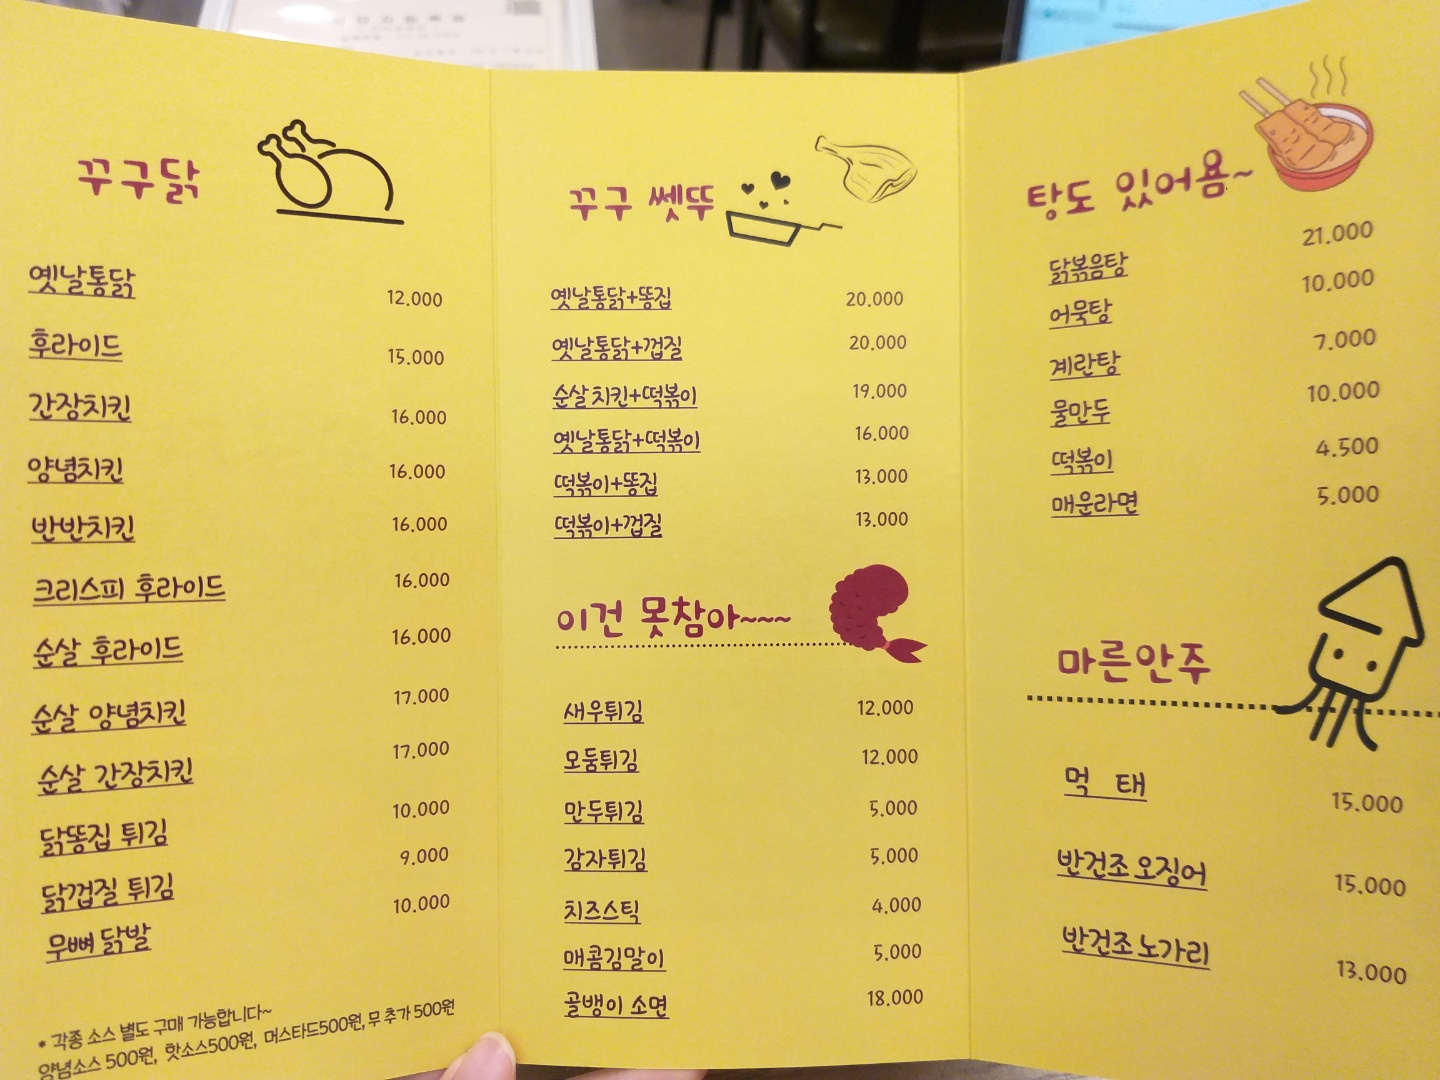 꾸구닭
옛날통닭 12.000
후라이드 15.000
간장치킨 16.000
양념치킨 16.000
반반치킨 16.000
크리스피 후라이드 16.000
순살 후라이드 16.000
순살 양념치킨 17.000
순살 간장치킨 17.000
닭똥집 튀김 10.000
닭껍질 튀김 9.000
무뼈 닭발 10.000
* 각종 소스 별도 구매 가능합니다~
양념소스 500원, 핫소스500원, 머스타드500원, 무 추가 500원
꾸구 쎗뚜
옛날통닭+똥집 20.000
옛날통닭+껍질 20.000
순살치킨+떡볶이 19.000
옛날통닭+떡볶이 16.000
떡볶이+똥집 13.000
떡볶이+껍질 13.000
이건 못참아~~~
새우튀김 12.000
모둠튀김 12.000
만두튀김 5.000
감자튀김 5.000
치즈스틱 4.000
매콤김말이 5.000
골뱅이 소면 18.000
탕도 있어욤~
닭볶음탕 21.000
어묵탕 10.000
계란탕 7.000
물만두 10.000
떡볶이 4.500
매운라면 5.000
마른안주
먹 태 15.000
반건조 오징어 15.000
반건조 노가리 13.000